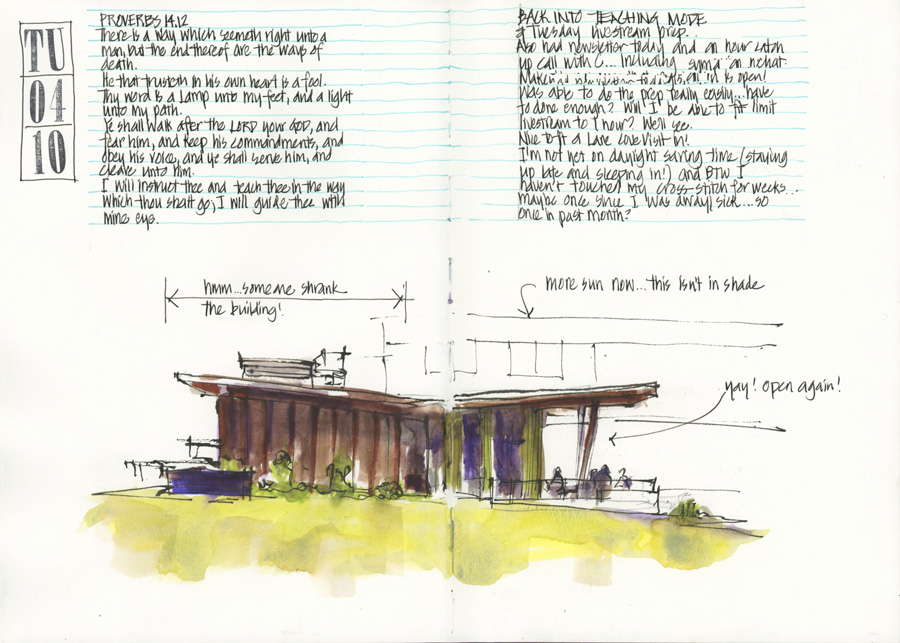 TU
04
10
PROVERBS 14.12
There is a way which seemeth right unto a
man, but the end thereof are the ways of
death.
He that trusteth in his own heart is a fool.
Thy word is a lamp unto my feet, and a light
unto my path.
Ye shall walk after the LORD your GOD, and
fear him, and keep his commandments, and
obey his voice, and ye shall serve him, and
cleave unto him.
I will instruct thee and teach thee in the way
which thou shalt go; I will guide thee with
mine eye.
BACK INTO TEACHING MODE
& Tuesday livestream prep..
Also had newsletter today and an hour catch
up call with C... Including symp on nchat.
is open!
Was able to do the prep really easily...have
to done enough? Will I be able to fit limit
livestream to 1 hour? We'll see.
Nice to fit a Lane Cove visit in!
I'm not yet on daylight saving time (staying
up late and sleeping in!) and BTW I
haven't touched my cross-stitch for weeks...
maybe once since I was away/sick....so
once in past month?
hmm...someone shrank
the building!
more sun now...this isn't in shade
yay! open again!